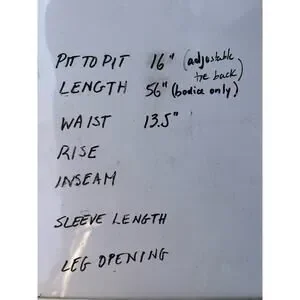 PIT TO PIT 16" (adjustable
tie back)
LENGTH 56" (bodice only)
WAIST 13.5"
RISE
INSEAM
SLEEVE LENGTH
LEG OPENING